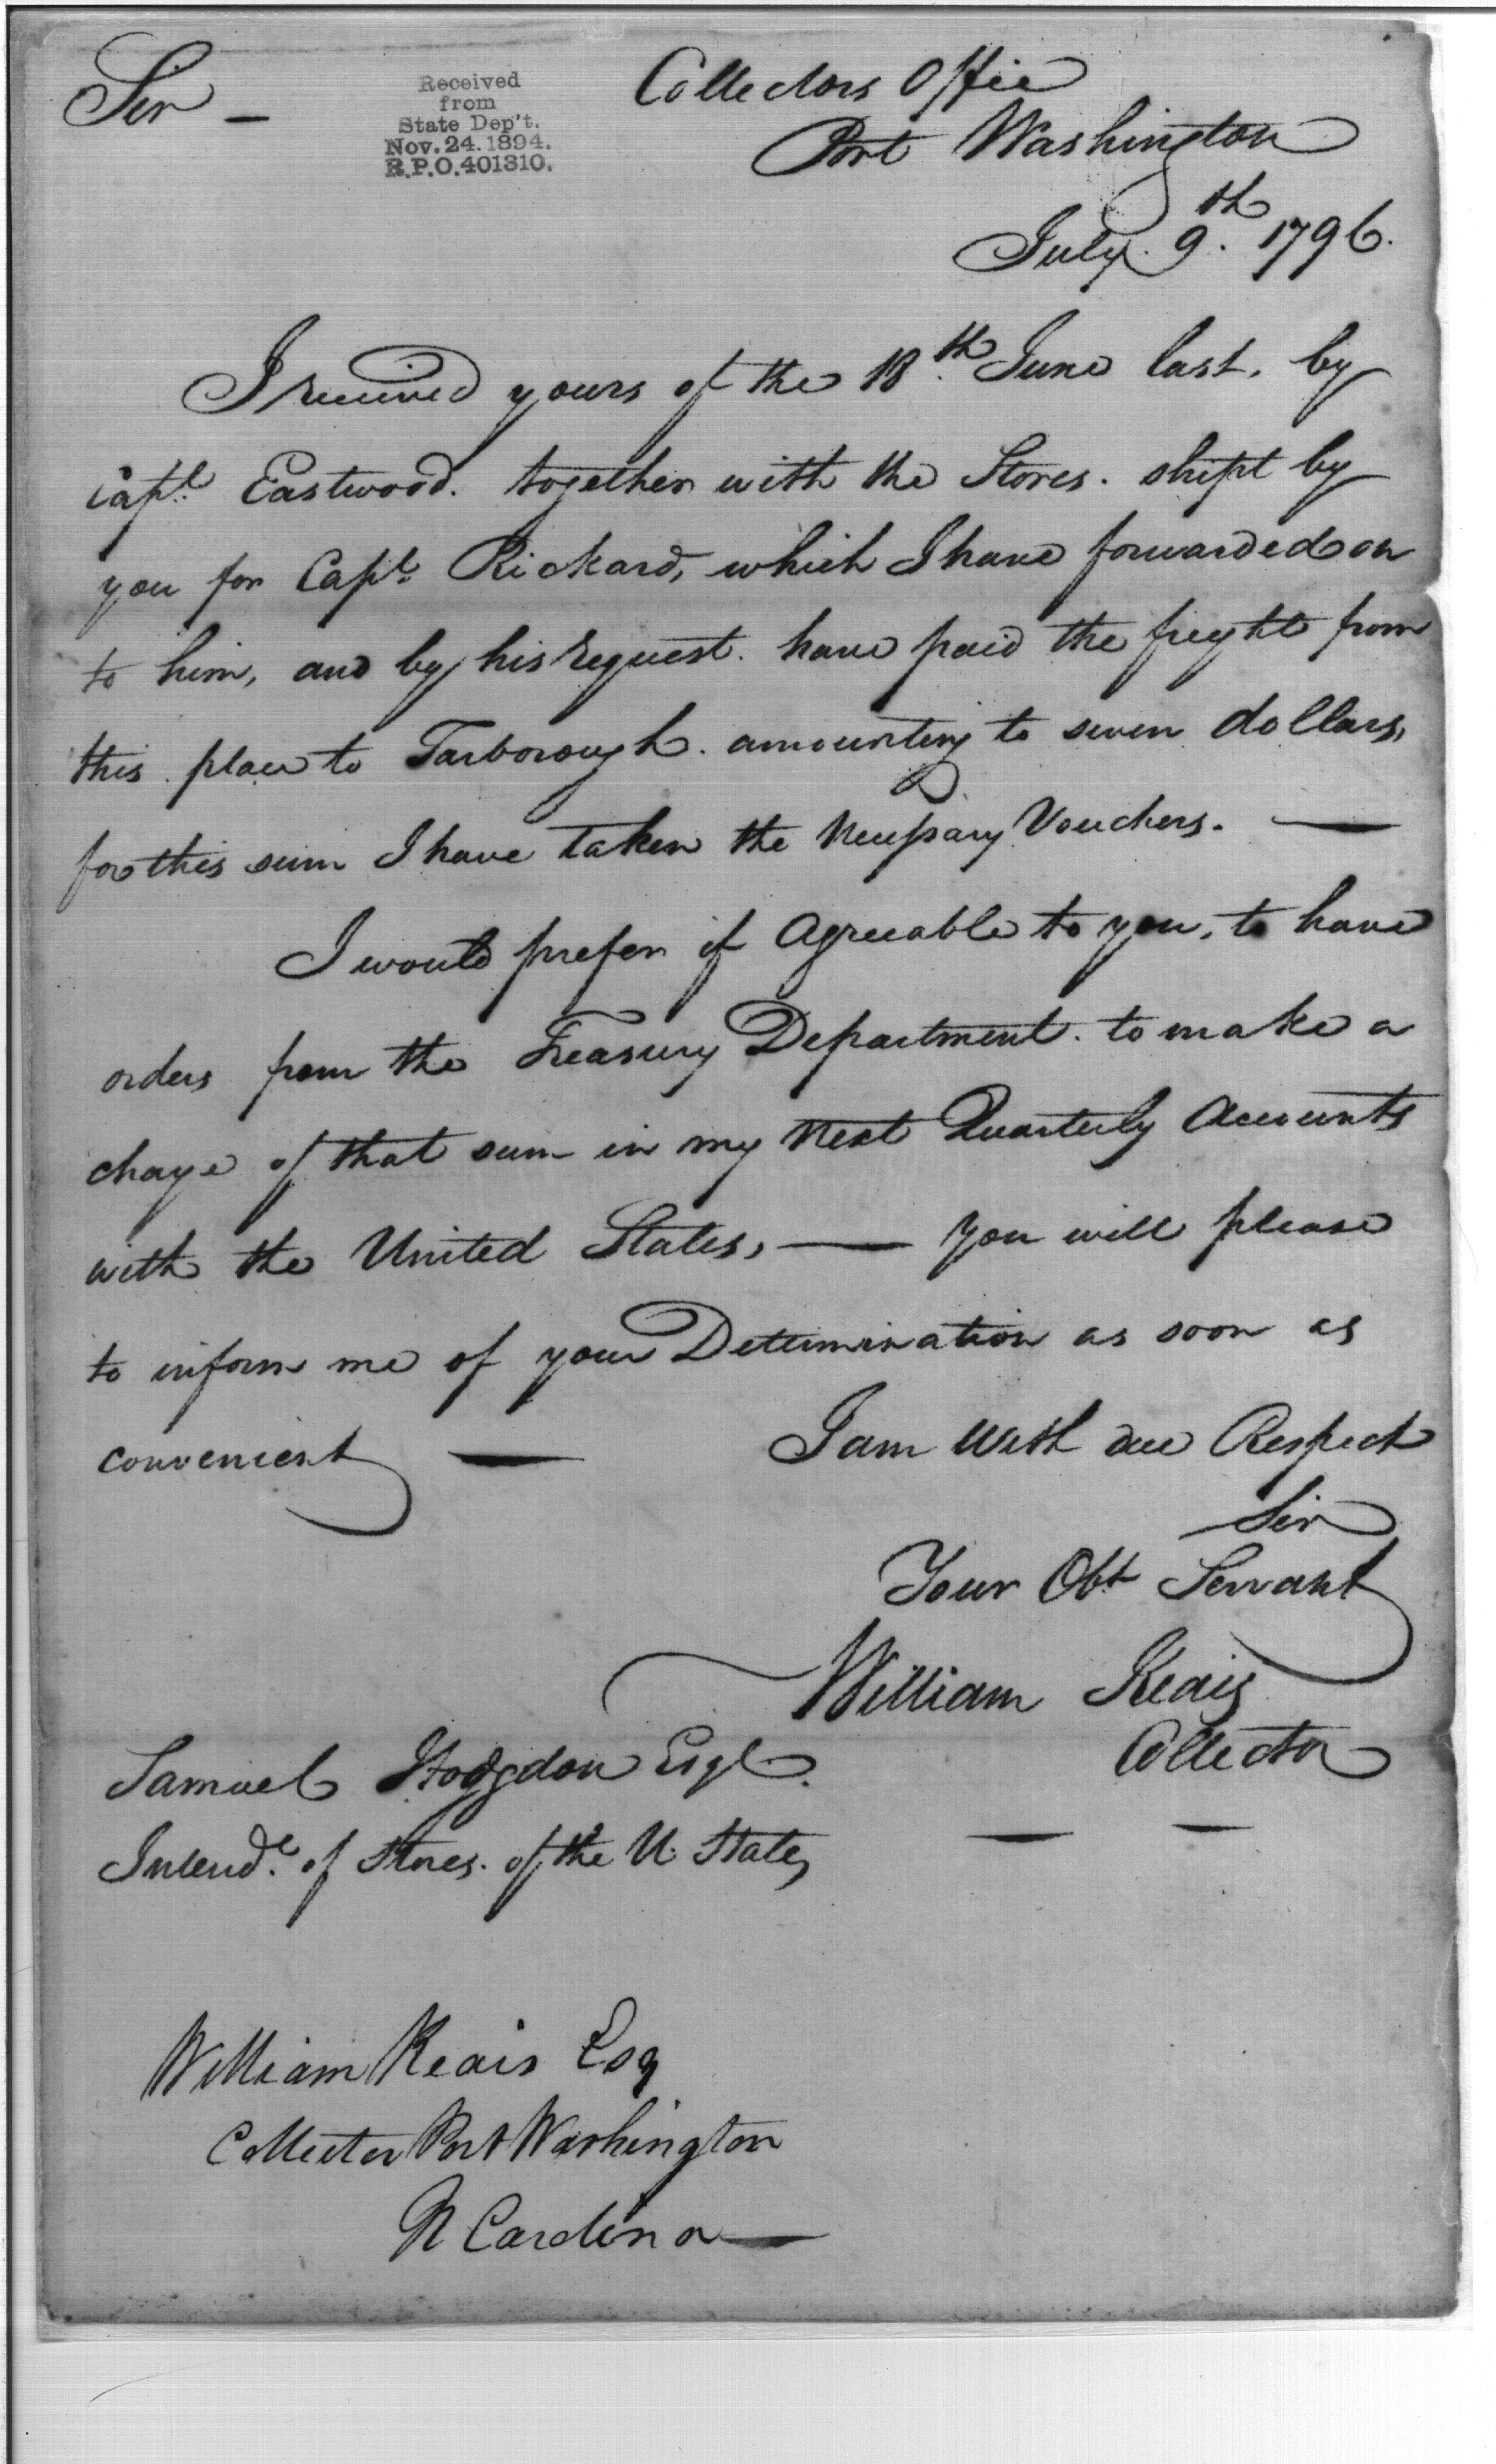 Sir —
Received
from
State Dep't.
Nov. 24. 1894.
R.P.O. 401310.
Collectors Office
Port Washington
July. 9.th 1796.
I received yours of the 18.th June last, by
Capt. Eastwood. together with the Stores. shipt by
you for Capt. Rickard, which I have forwarded on
to him, and by his request. have paid the freght from
this place to Tarborough. amounting to seven dollars,
for this sum I have taken the Necessary Vouchers. —
I would prefer if Agreeable to you, to have
orders from the Treasury Department. to make a
charge of that sum in my Next Quarterly Accounts
with the United States, — you will please
to inform me of your Determination as soon as
convenient —
I am with due Respect
Sir
Your Obt Servant
William Keais
Collector
Samuel Hodgdon Esqr.
Intendt. of Stores. of the U. States
William Keais Esq
Collector Port Washington
N Carolina —